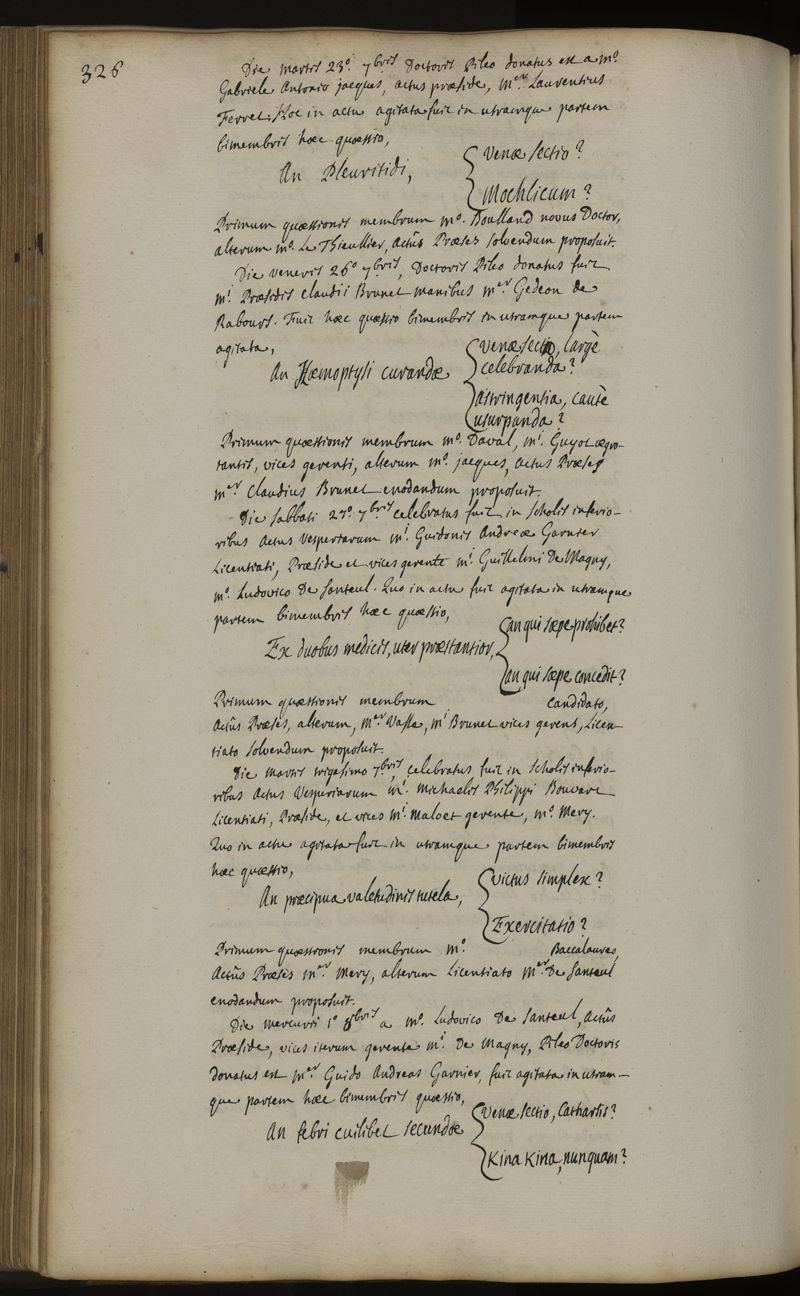 326
Die Martis 23º. 7bris Doctoris Pileo donatus est a mº.
Gabriele Antonio jacques, actus præside, mer. Laurentius
Ferret. Hoc in actu agitata fuit in utramque partem
bimembris hæc quæstio,
An Pleuritidi,
Venæ sectio?
Mochlicum?
Primum quæstionis membrum mº. Boulland novus Doctor,
alterum mº. Le Thieullier, actûs Præses solvendum proposuit.
Die veneris 26º 7bris, Doctoris Pileo donatus fuit
mi. Præsidis claudii Brunet manibus mer. Gedeon de
Rabours. Fuit hæc quæstio bimembris in utramque partem
agitata,
An Hæmoptysi curandæ
venæ sectio, largè
celebranda?
astringentia, cautè
usurpanda?
Primum quæstionis membrum mº. Daval, mi. Guyot ægro-
tantis, vices gerenti, alterum mº. jacques, actus Præses
mer. Claudius Brunet enodandum proposuit.
Die sabbati 27º. 7bris celebratus fuit in scholis inferio-
ribus Actus Vesperiarum mi. Guidonis Andreæ Garnier
Licentiati, Præside et vices gerente mi. Guillelmi De Magny,
mº. Ludovico De Santeul. Quo in actu fuit agitata in utramque
partem bimembris hæc quæstio,
Ex duobus medicis, uter præstantior,
an qui sæpe prohibet?
an qui sæpe concedit?
Primum quæstionis membrum candidato,
actûs Præses, alterum, mer. Vasse, mi Brunet vices gerens, Licen-
tiato solvendum proposuit.
Die Martis trigesimo 7bris, celebratus fuit in scholis inferio-
ribus Actus Vesperiarum mi. Michaelis Philippi Bouvart
Licentiati, Præside, et vices mi. Maloet gerente, mº. Mery.
Quo in actu agitata fuit in utramque partem bimembris
hæc quæstio,
An præcipua valetudinis tutela,
victus simplex?
Exercitatio?
Primum quæstionis membrum mº. Baccalaureo,
Actûs Præses mer. Mery, alterum Licentiato mer. De Santeul
enodandum proposuit.
Die mercurii 1º 8bris a mº. Ludovico De Santeul, Actûs
Præside, vices iterum gerente mi. De Magny, Pileo Doctoris
donatus est mer. Guido Andreas Garnier, fuit agitata in utram-
que partem hæc bimembris quæstio,
An febri cuilibet secundæ
Venæ sectio, Catharsis?
Kina Kina, nunquam?